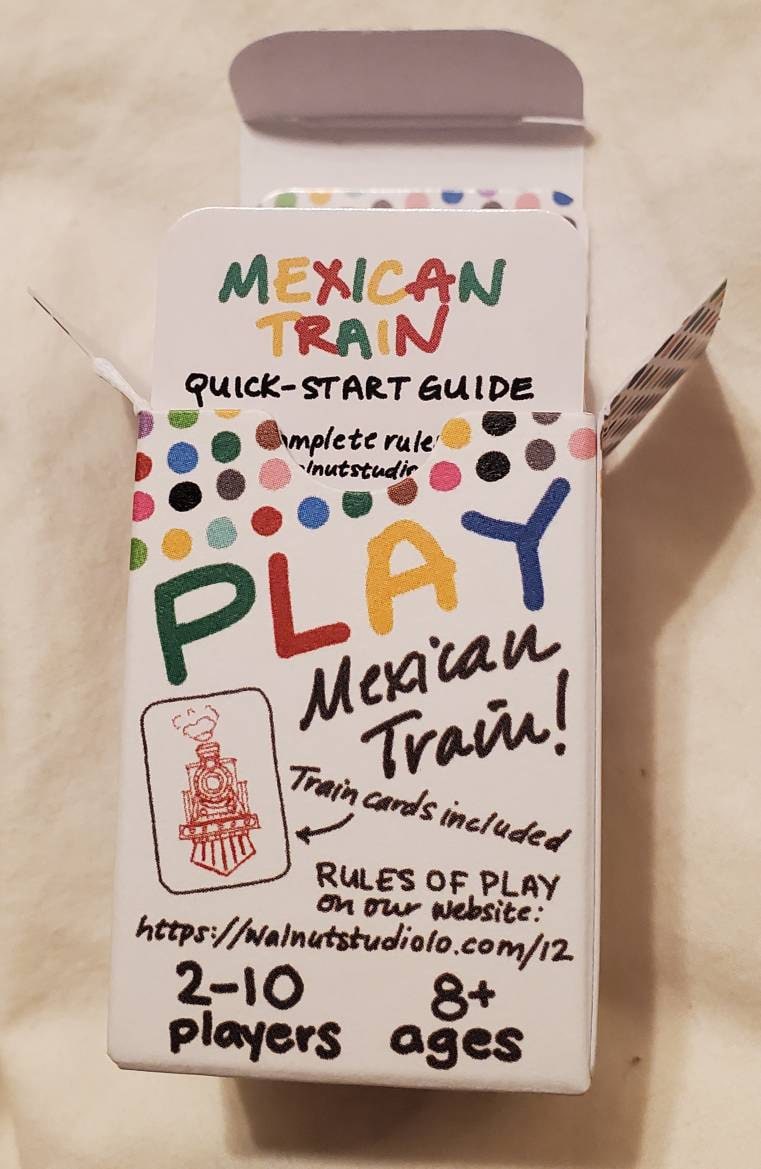 MEXICAN
TRAIN
QUICK-START GUIDE
PLAY
Mexican
Train!
Train cards included
RULES OF PLAY
on our website:
https://walnutstudiolo.com/12
2-10
players
8+
ages